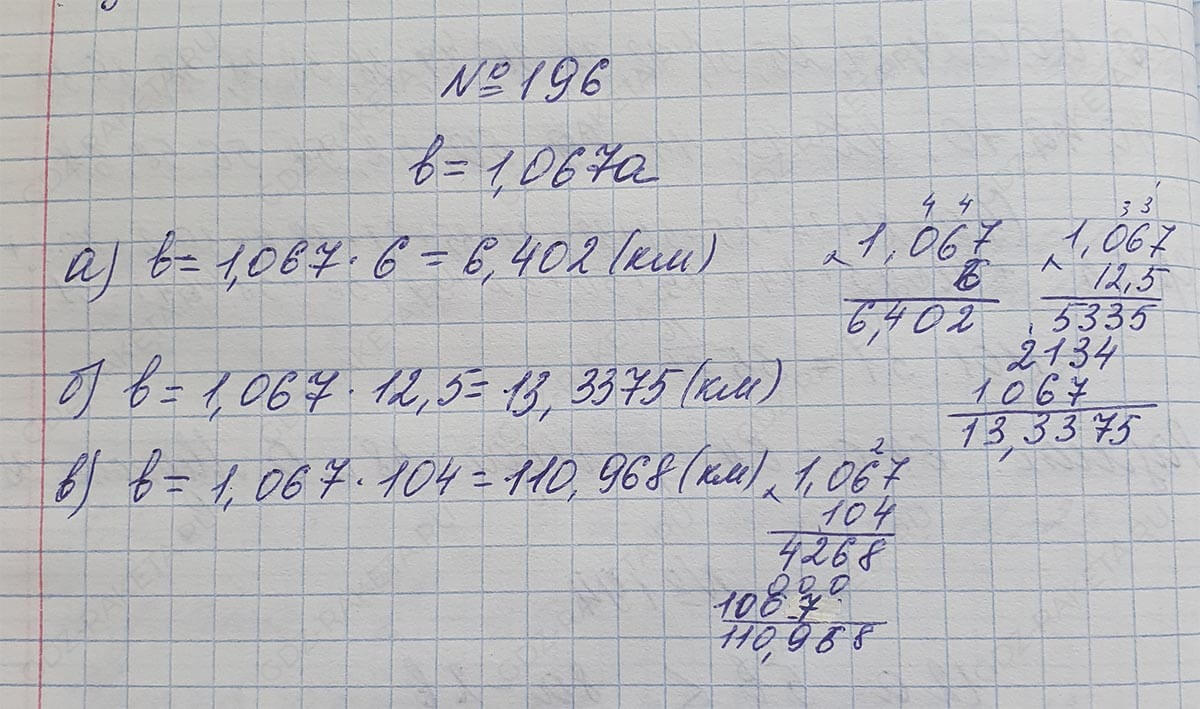 № 196
в = 1,067а
а) в = 1,067 · 6 = 6,402 (км)
4 4
× 1,067
6
6,402
3 3
× 1,067
12,5
5335
2134
1067
13,3375
б) в = 1,067 · 12,5 = 13,3375 (км)
в) в = 1,067 · 104 = 110,968 (км)
2
× 1,067
104
4268
000
1067
110,968